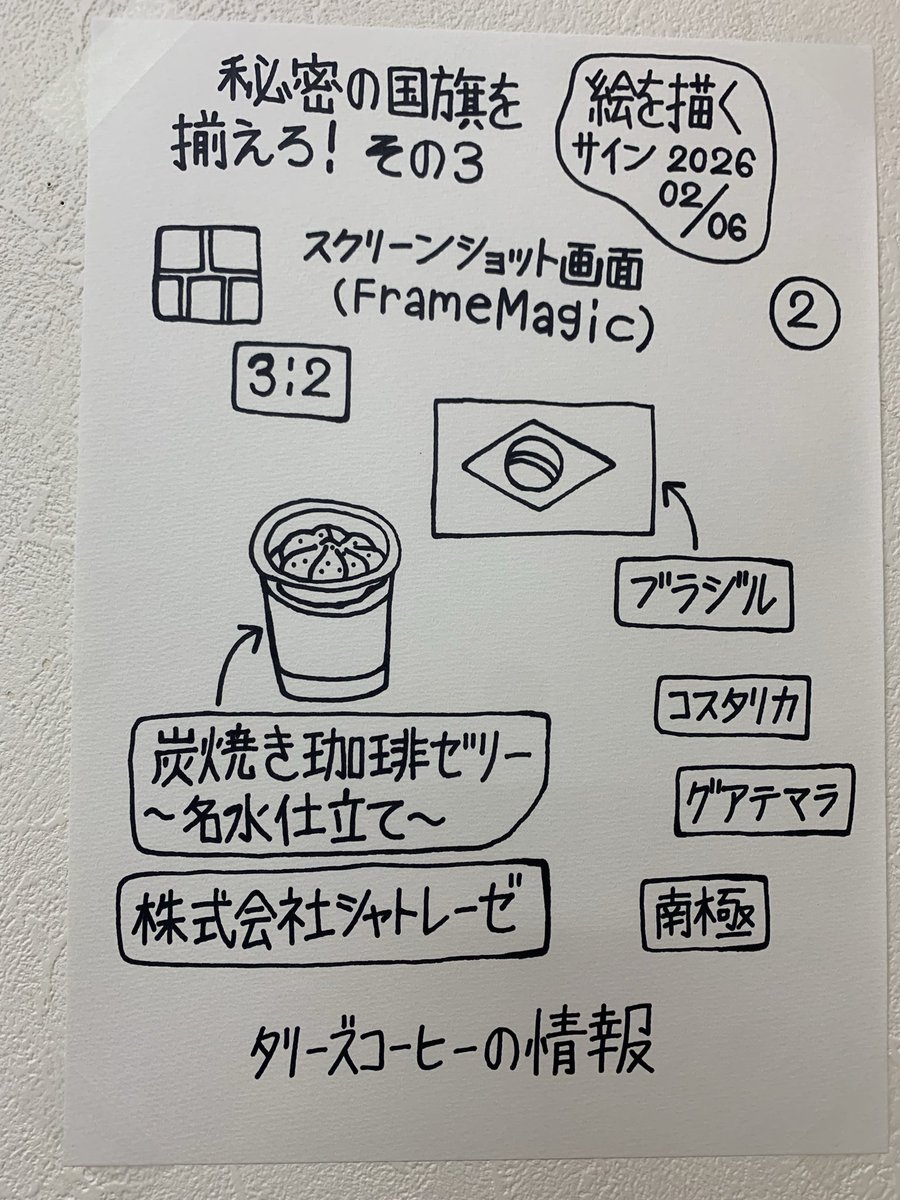 秘密の国旗を
揃えろ! その3
絵を描く
サイン 2026
02/06
スクリーンショット画面
(FrameMagic)
2
3:2
ブラジル
コスタリカ
炭焼き珈琲ゼリー
~名水仕立て~
グアテマラ
株式会社シャトレーゼ
南極
タリーズコーヒーの情報